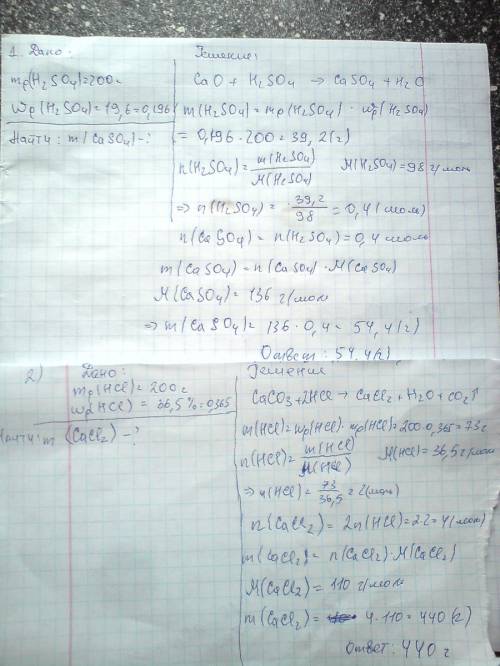 1. Дано:
mр(H₂SO₄)=200г
Wр(H₂SO₄)=19,6=0,196
Найти: m(CaSO₄)-?
Решение:
CaO + H₂SO₄ → CaSO₄ + H₂O
m(H₂SO₄) = mр(H₂SO₄) · wр(H₂SO₄)
= 0,196 · 200 = 39,2(г)
n(H₂SO₄) = m(H₂SO₄)/M(H₂SO₄) M(H₂SO₄)=98 г/моль
⇒ n(H₂SO₄) = 39,2/98 = 0,4(моль)
n(CaSO₄) = n(H₂SO₄) = 0,4 моль
m(CaSO₄) = n(CaSO₄) · M(CaSO₄)
M(CaSO₄) = 136 г/моль
⇒ m(CaSO₄) = 136 · 0,4 = 54,4(г)
Ответ: 54,4(г)
2) Дано:
mр(HCl) = 200г
wр(HCl) = 36,5% = 0,365
Найти: m(CaCl₂) -?
Решение
CaCO₃ + 2HCl → CaCl₂ + H₂O + CO₂↑
m(HCl) = wр(HCl) · mр(HCl) = 200 · 0,365 = 73г
n(HCl) = m(HCl)/M(HCl) M(HCl) = 36,5 г/моль
⇒ n(HCl) = 73/36,5 = 2(моль)
n(CaCl₂) = 2n(HCl) = 2·2 = 4(моль)
m(CaCl₂) = n(CaCl₂) · M(CaCl₂)
M(CaCl₂) = 110 г/моль
m(CaCl₂) = 4 · 110 = 440(г)
Ответ: 440 г